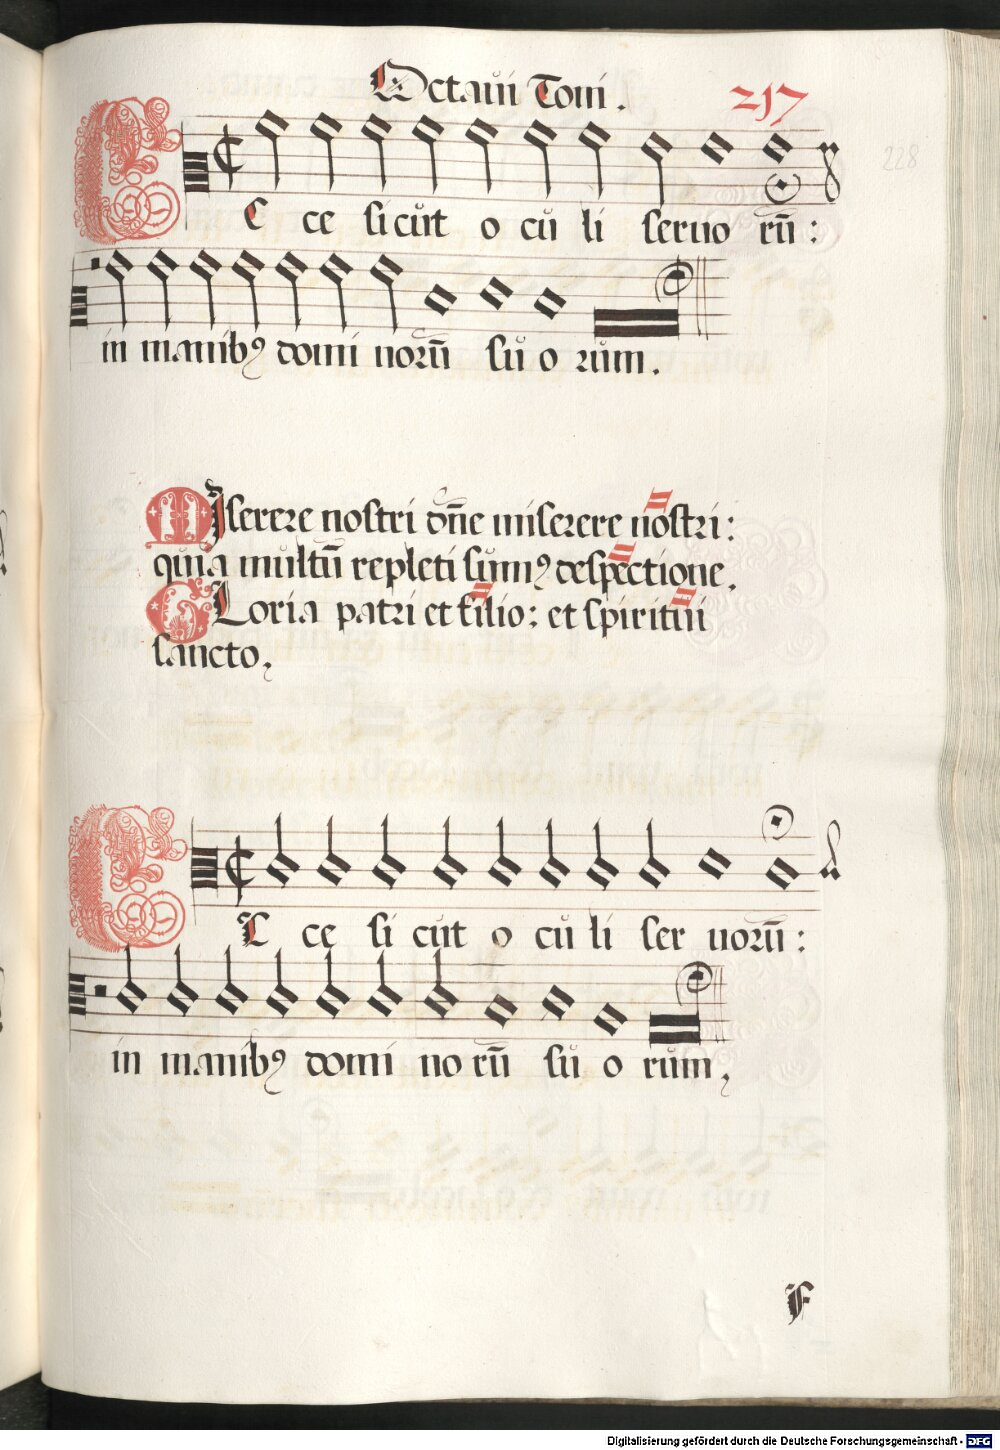 Octaui Toni.
217
228
Ecce sicut oculi seruorū:
in manibꝯ dominorū suorum.
Miserere nostri dn̄e miserere nostri:
quia multū repleti sumꝯ despectione.
Gloria patri et filio: et spiritui
sancto.
Ecce sicut oculi seruorū:
in manibꝯ dominorū suorum.
F
Digitalisierung gefördert durch die Deutsche Forschungsgemeinschaft - DFG